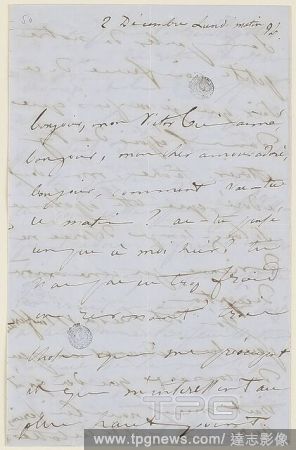 50
2 Décembre Lundi matin 9h
bonjour, mon Victor bien aimé
bonjour, mon cher amour adoré,
bonjour, comment vas-tu
ce matin ? as tu pensé
un peu à moi hier ? tu
n'as pas eu trop froid
en revenant
chose qui me
et qui m'intéressent au
plus haut point.
TPG
www.tpgnews.com / 達志影像